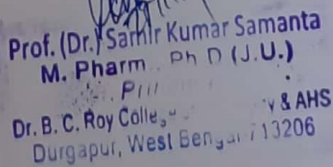 Prof. (Dr.) Samir Kumar Samanta
M. Pharm Ph D (J.U.)
Dr. B. C. Roy & AHS
Durgapur, West 713206